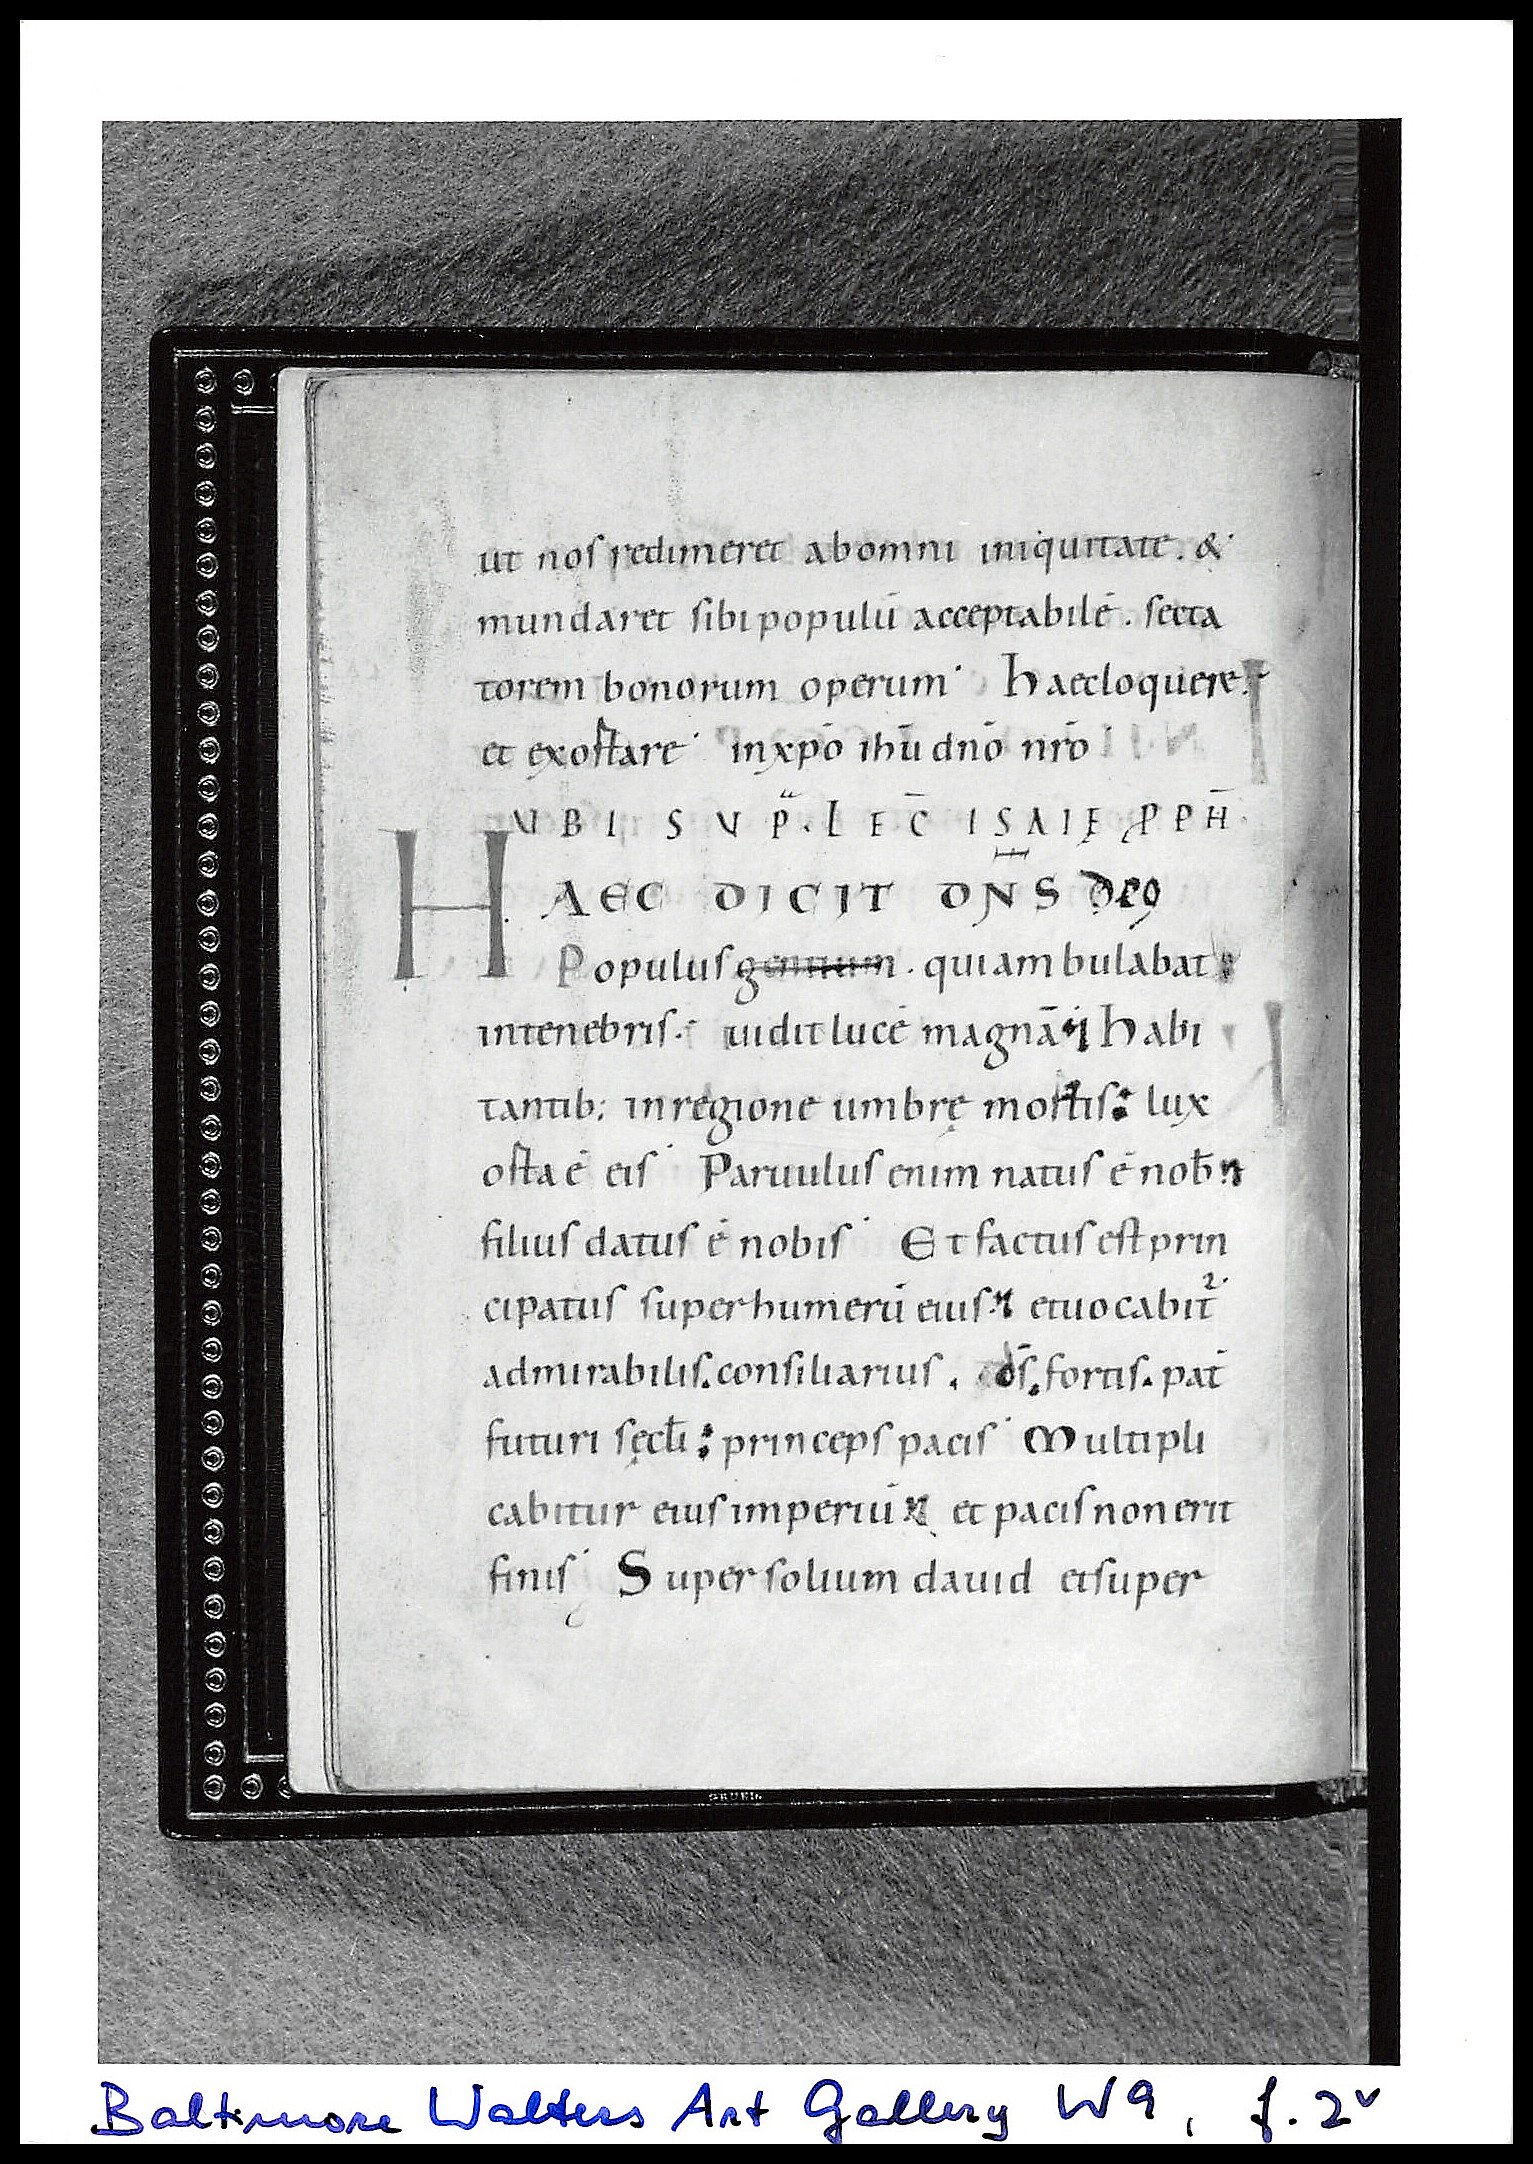 ut nos redimeret abomni iniquitate. &
mundaret sibi populū acceptabilē. secta
torem bonorum operum Haec loquere
et exortare in xpō ihū dnō nrō
UBI SUP. LEC ISAIE PPH
HAEC DICIT DNS
Populus gentium. qui ambulabat
in tenebris. uidit lucē magnā Habi
tantib; in regione umbrę mortis: lux
orta ē eis Paruulus enim natus ē nob
filius datus ē nobis Et factus est prin
cipatus super humerū eius et uocabit
admirabilis. consiliarius. ds. fortis. pat
futuri sęcli: princeps pacis Multipli
cabitur eius imperiū et pacis non erit
finis Super solium dauid et super
GRUEL
Baltimore Walters Art Gallery W9, f. 2v